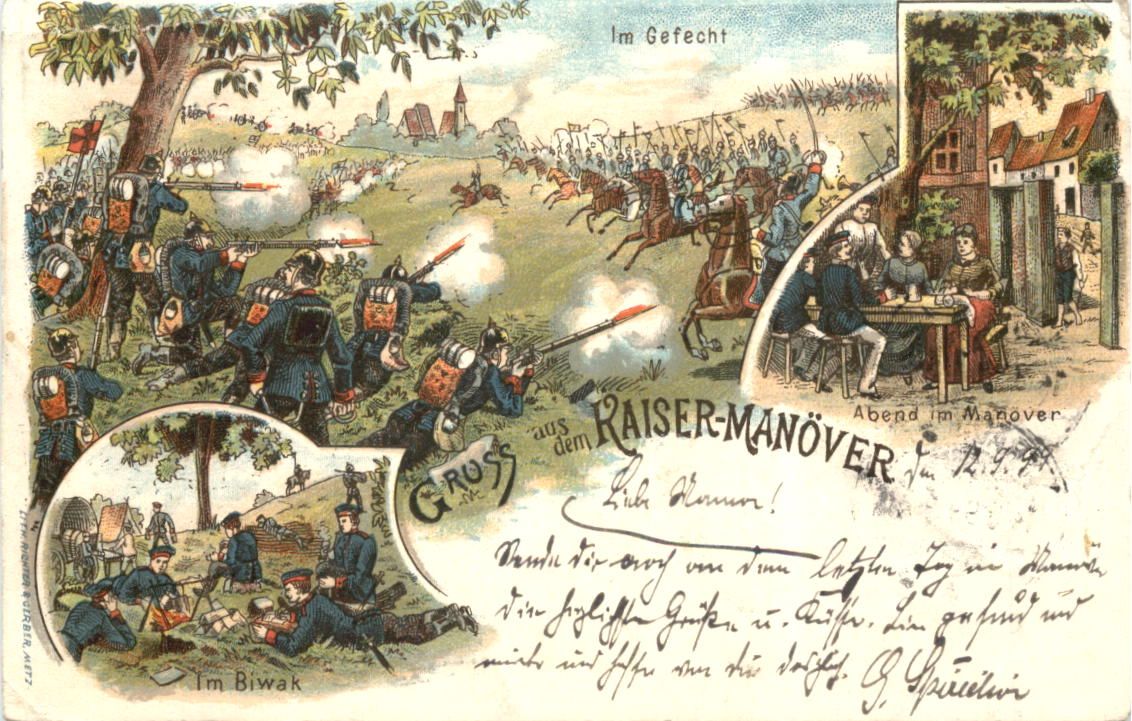 Im Gefecht
Abend im Manöver
Gruss aus dem KAISER-MANÖVER
Im Biwak
Den 12.9.99
Liebe Mama!
Sende dir noch von dem letzten Tag im Manöver
die herzlichsten Grüße u. Küsse. Bin gesund und
munter und hoffe von dir desgleich.
LITH. RICHTER & GERBER, METZ